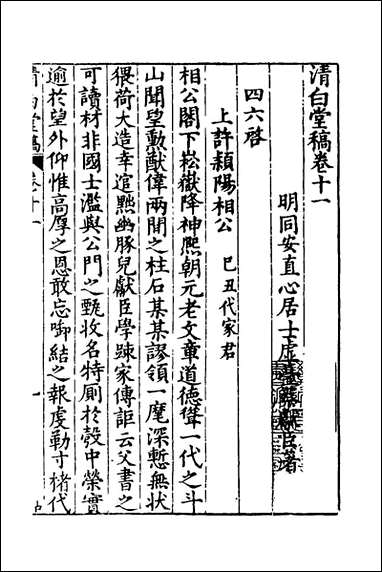 清白堂稿卷十一
明同安直心居士虛臺蔡獻臣著
四六啓
上許潁陽相公 己丑代家君
相公閣下崧嶽降神熙朝元老文章道德聳一代之斗
山聞望勳猷偉兩間之柱石某某謬領一麾深慙無狀
猥荷大造幸逭黜幽豚兒獻臣學踈家傳詎云父書之
可讀材非國士濫與公門之甄收名特厠於彀中榮實
逾於望外仰惟高厚之恩敢忘啣結之報虔勒寸楮代
清白堂稿 卷十一 一